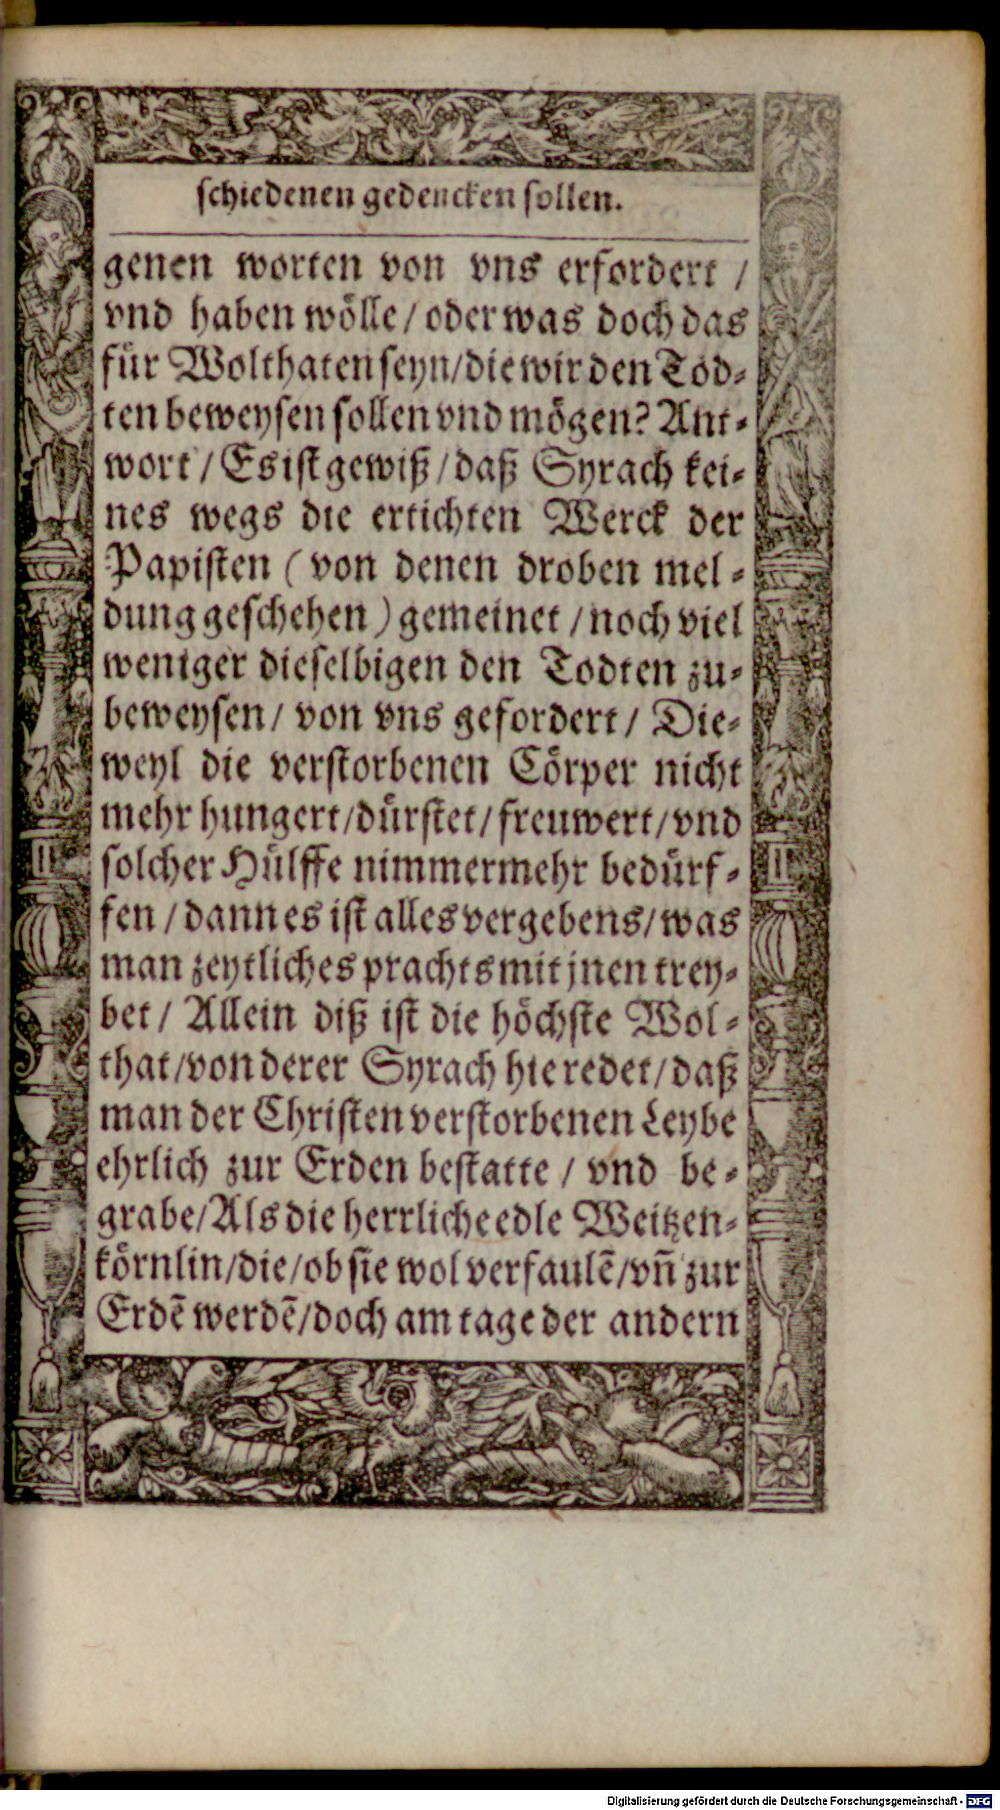 schiedenen gedencken sollen.
genen worten von vns erfordert /
vnd haben wölle / oder was doch das
für Wolthaten seyn/die wir den Tod-
ten beweysen sollen vnd mögen? Ant-
wort / Es ist gewiß / daß Syrach kei-
nes wegs die ertichten Werck der
Papisten (von denen droben mel-
dung geschehen) gemeinet / noch viel
weniger dieselbigen den Todten zu-
beweysen / von vns gefordert / Die-
weyl die verstorbenen Cörper nicht
mehr hungert/dürstet/freuwert/vnd
solcher Hülffe nimmermehr bedürf-
fen / dann es ist alles vergebens/was
man zeytliches prachts mit jnen trey-
bet / Allein diß ist die höchste Wol-
that/von derer Syrach hie redet/daß
man der Christen verstorbenen Leybe
ehrlich zur Erden bestatte / vnd be-
grabe/Als die herrliche edle Weitzen-
körnlin/die/ob sie wol verfaulē/vn̄ zur
Erdē werdē/doch am tage der andern
Digitalisierung gefördert durch die Deutsche Forschungsgemeinschaft - DFG